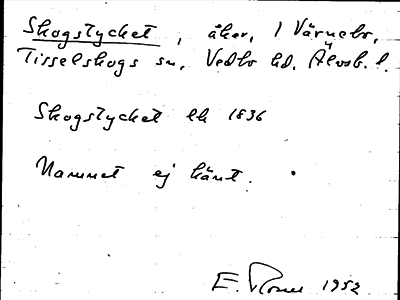 Skogstycket, åker, 1 Värnebo,
Tisselskogs sn, Vedbo hd. Älvsb. l.
Skogstycket lh 1836
Namnet ej känt.
E. 1952